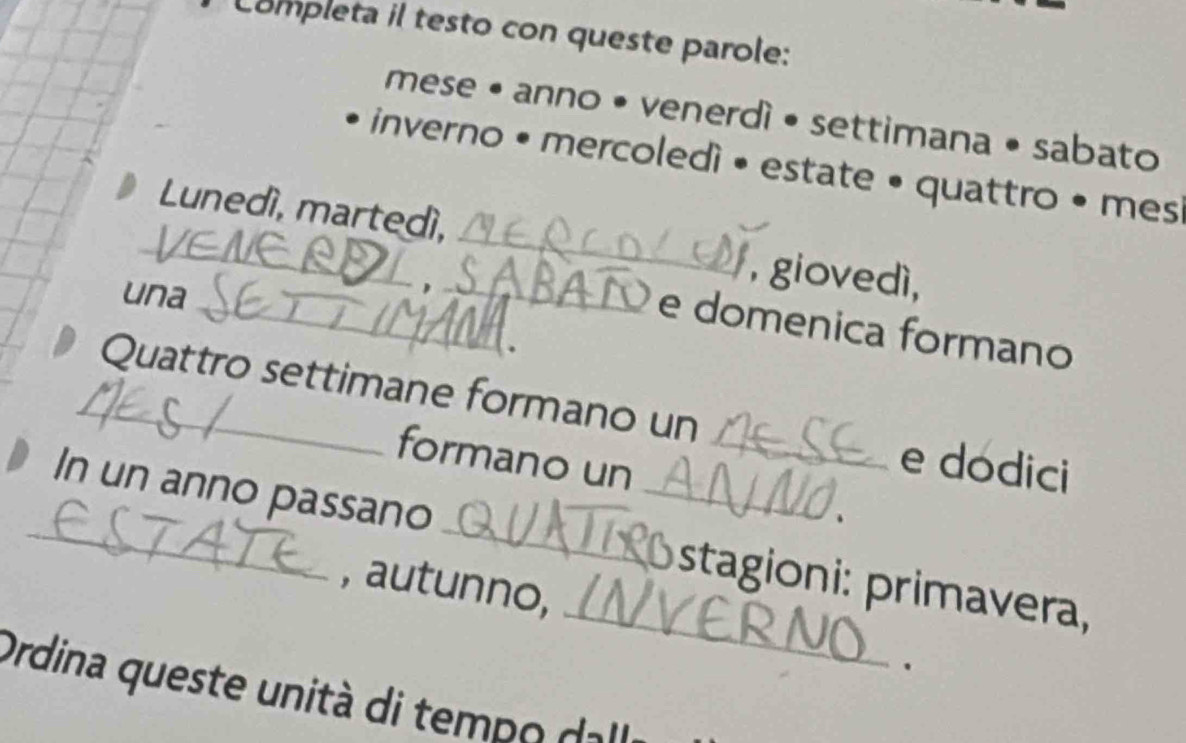 Completa il testo con queste parole:
mese • anno • venerdì • settimana • sabato
• inverno • mercoledì • estate • quattro • mesi
Lunedì, martedì, MERCOLEDĬ, giovedì,
VENERDI, SABATO e domenica formano
una SETTIMANA.
Quattro settimane formano un MESE e dodici
MESI formano un ANNO.
In un anno passano QUATTRO stagioni: primavera,
ESTATE, autunno, INVERNO.
Ordina queste unità di tempo